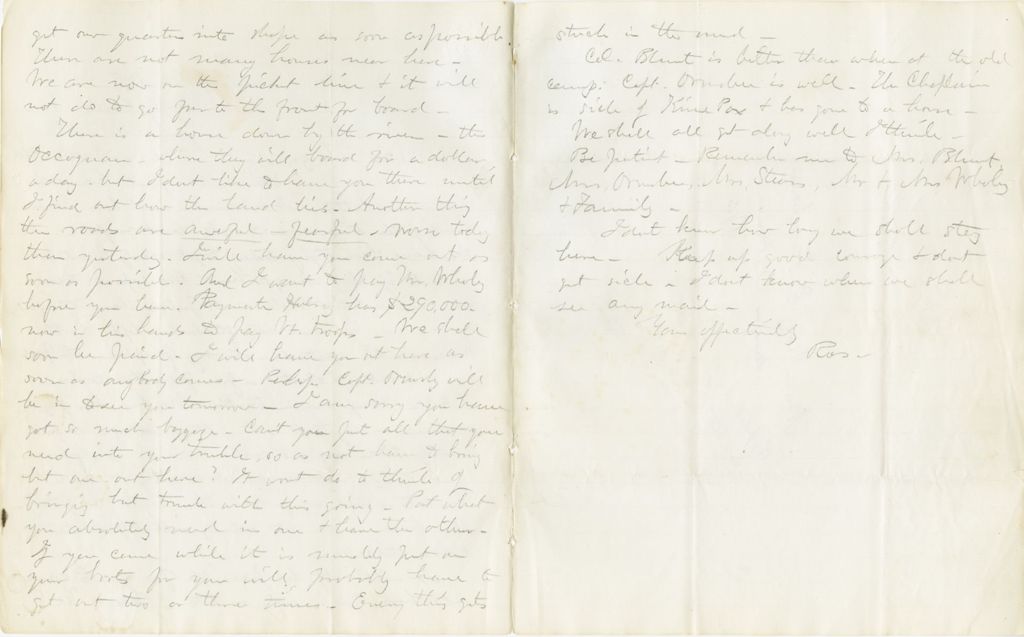 get our quarters into shape as soon as possible.
There are not many houses near here -
We are now on the picket line & it will
not do to go far to the front for board -
There is a house down by the river - the
Occoquan - where they will board for a dollar
a day. but I dont like to have you there until
I find out how the land lies. Another thing
the roads are aweful - fearful - worse today
than yesterday. I will have you come out as
soon as possible. And I want to pay Mr. Wholey
before you leave. Paymaster Halsey has $290,000.
now in his hands to pay Vt. troops - We shall
soon be paid. I will have you out here as
soon as anybody comes - Perhaps Capt. Ormsby will
be in to see you tomorrow - I am sorry you have
got so much baggage - Cant you put all that you
need into your trunk, so as not have to bring
but one out here? It wont do to think of
bringing but trunk with this going - Put what
you absolutely need in one & leave the other -
If you come while it is muddy put on
your boots for you will probably have to
get out two or three times - Every thing gets
stuck in the mud -
Col. Blunt is better than when at the old
camp. Capt. Ormsbee is well - The Chaplain
is sick of Kine Pox & has gone to a house -
We shall all get along well I think -
Be patient - Remember me to Mrs. Blunt,
Mrs. Ormsbee, Mrs. Stears, Mr & Mrs Wholey
& Family -
I dont know how long we shall stay
here - Keep up good courage & dont
get sick - I dont know when we shall
see any mail -
Your affectionately
Ros -